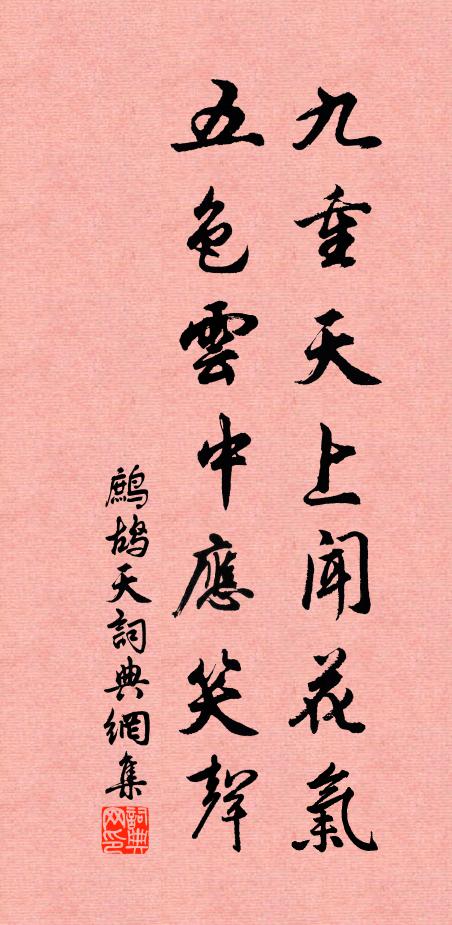 九重天上聞花氣
五色雲中應笑聲
鷓鴣天詞典網集
詞典网印